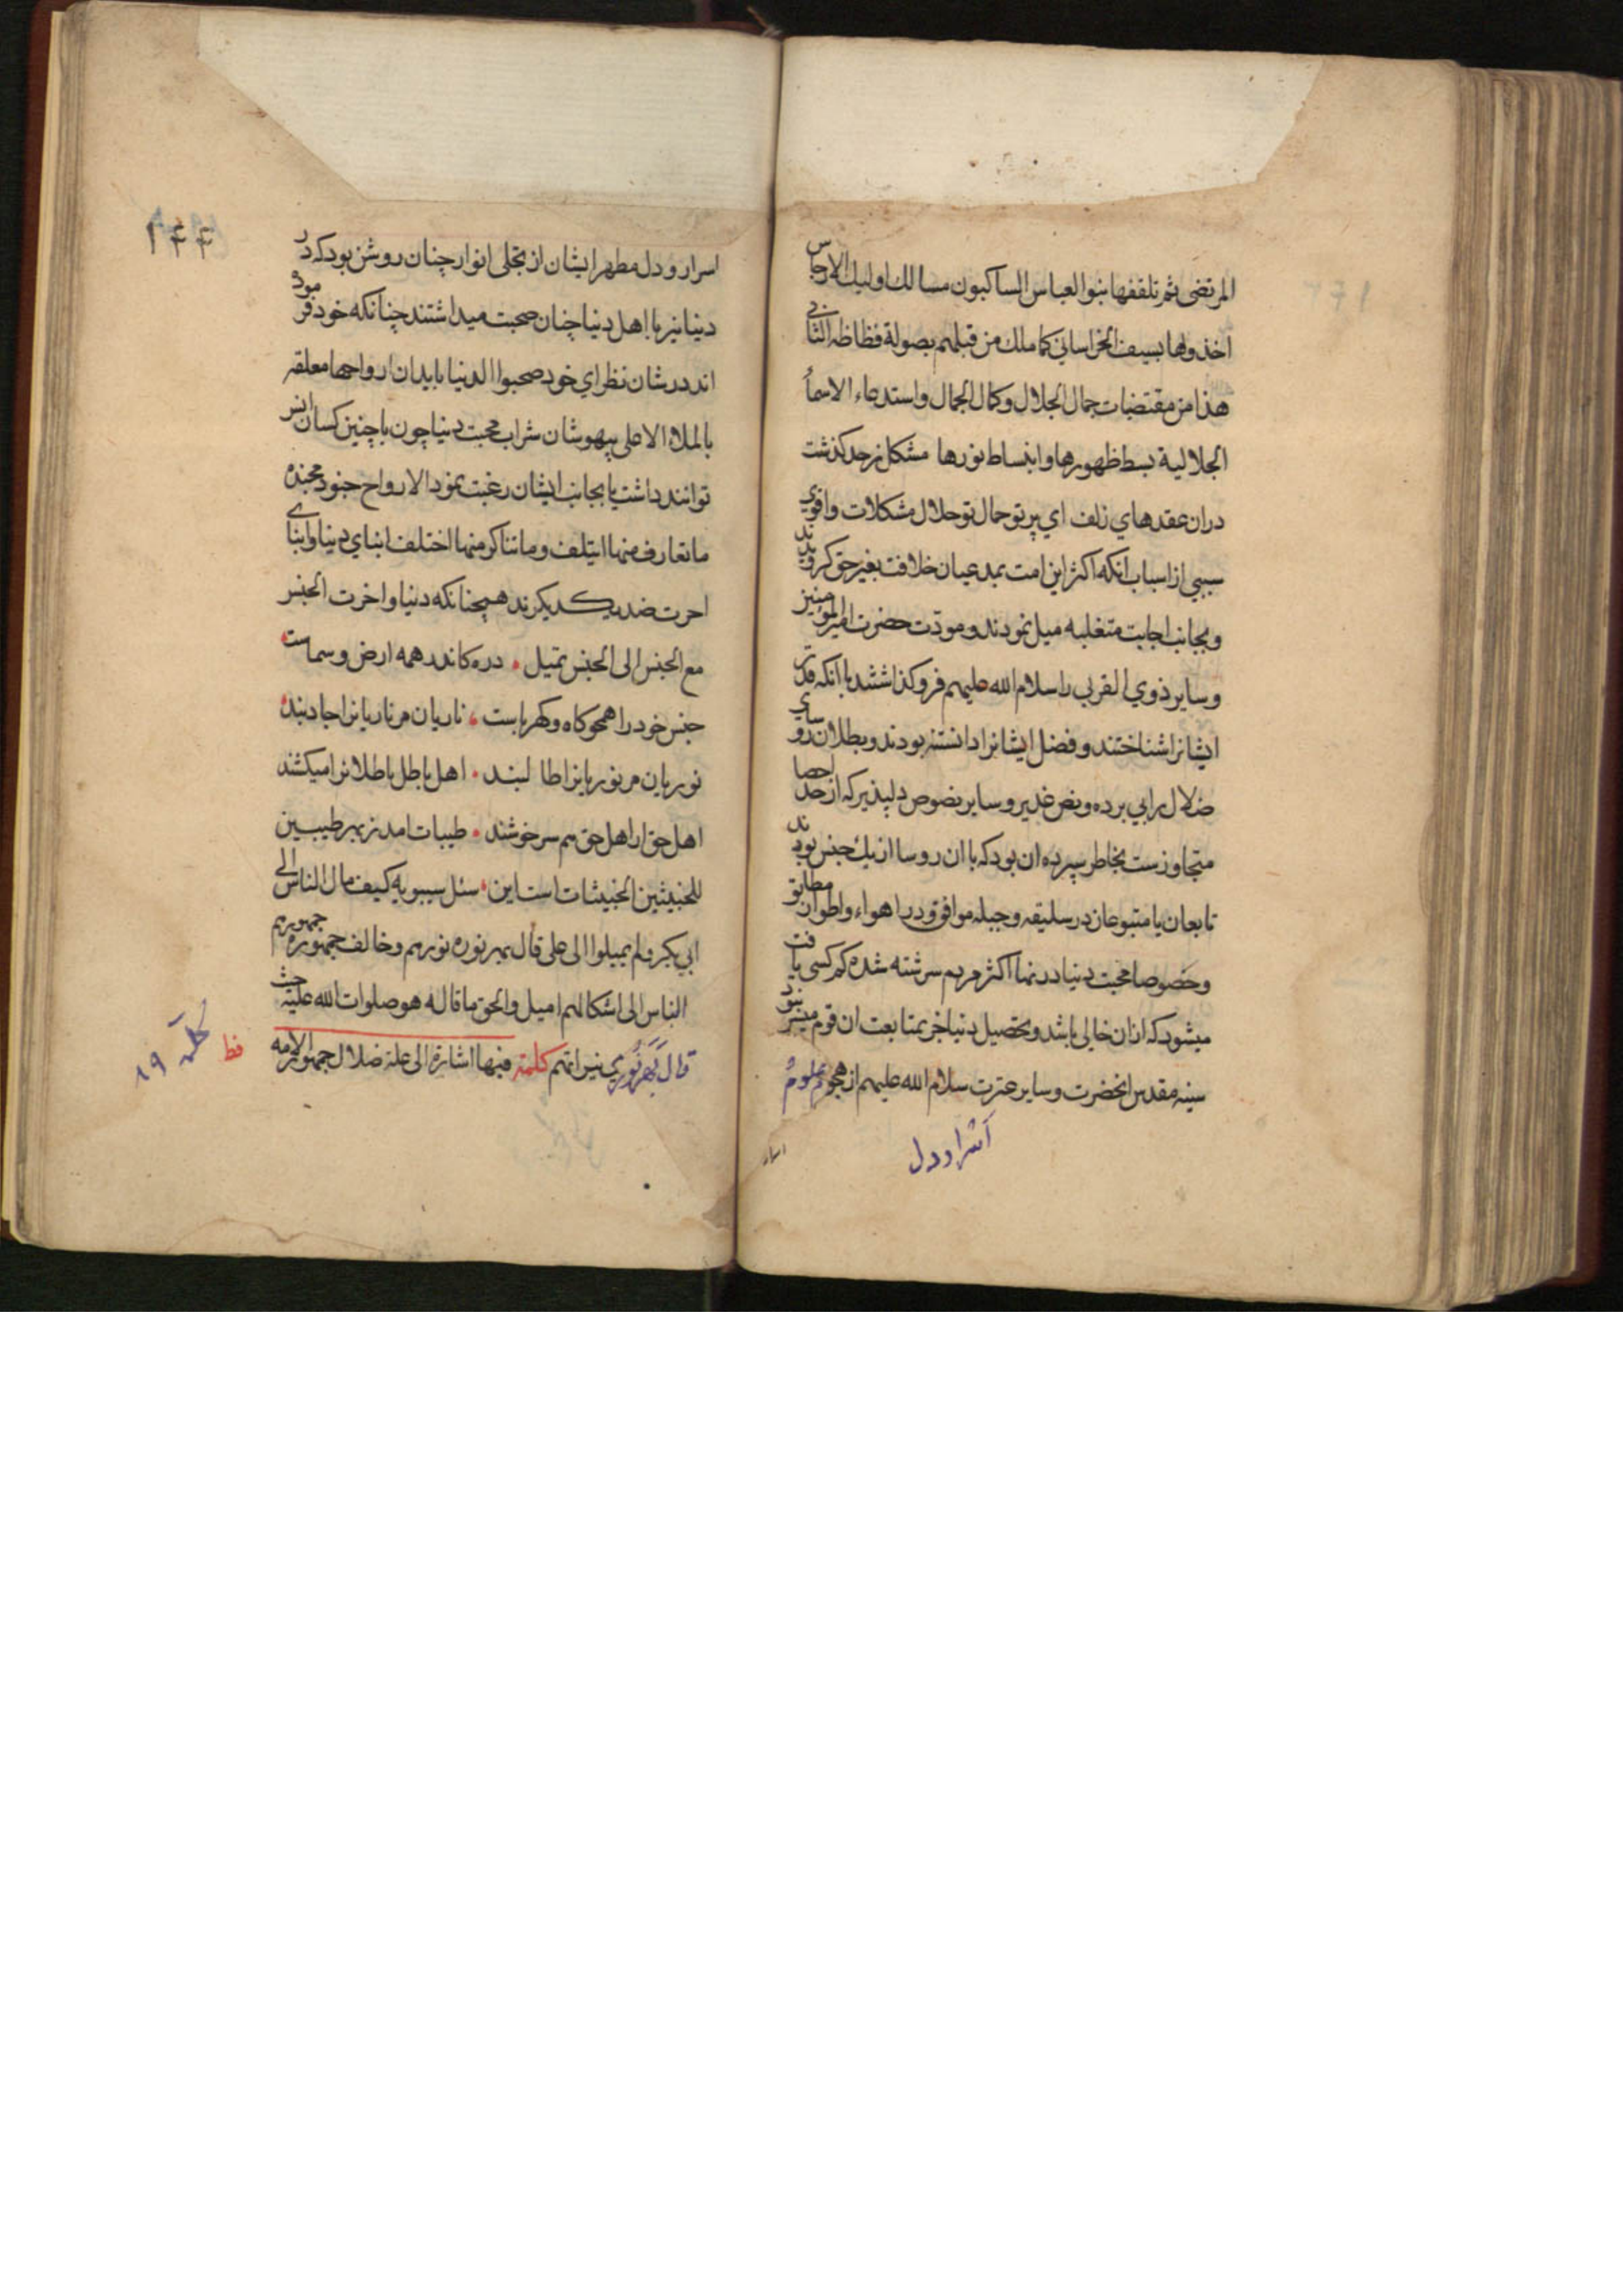 المرتضی ثم تلقفها بنو العباس السا کبون مسالك اولیك الارجاس
اخذوها بسیف الخراسانی کما ملك من قبلهم بصولة فظاظه الثانی
هذا من مقتضیات جمال الجلال وکمال الجمال واستدعاء الاسماء
الجلالیة بسط ظهورها وانبساط نورها مشکل زحد کذشت
دران عقدهای زلف ای پرتو جمال تو حلال مشکلات واقوی
سببی از اسباب انکه اکثر این امت بمدعیان خلافت بغیر حق کرویدند
وبجانب اجابت متغلبه میل نمودند ومودت حضرت امیر المومنین
وسایر ذوی القربی را سلام الله علیهم فروکذاشتند با انکه قدر
ایشانرا شناختند وفضل ایشانرا دانسته بودند وبطلان روسای
ضلال را پی برده ونص غدیر وسایر نصوص دلپذیر که از حد احصا
متجاوزست بخاطر سپرده ان بود که با ان روسا از یك جنس بودند
تابعان با متبوعان در سلیقه وجبله موافق ودر اهواء واطوار مطابق
وخصوصا محبت دنیا در نهاد اکثر مردم سرشته شده کم کسی یافت
میشود که از ان خالی باشد وتحصیل دنیا جز بمتابعت ان قوم میسر نبود
سینه مقدس انحضرت وسایر عترت سلام الله علیهم از هجوم علوم
اسرار ودل
اسرار
۱۴۴
اسرار ودل مطهر ایشان از تجلی انوار چنان روشن بود که در
دنیا نیز با اهل دنیا چنان صحبت میداشتند چنانکه خود فرموده
اند در شان نظرای خود صحبوا الدنیا بابدان ارواحها معلقه
بالملاء الاعلی بیهوشان شراب محبت دنیا چون با چنین کسان انس
توانند داشت یا بجانب ایشان رغبت نمود الارواح جنود مجنده
ما تعارف منها ایتلف وما تناکر منها اختلف ابنای دنیا وابنای
اخرت ضد یکدیکرند همچنانکه دنیا واخرت الجنس
مع الجنس الی الجنس تمیل . ذره کاندر همه ارض وسماست
جنس خود را همچو کاه وکهرباست . ناریان مر ناریانرا جادبند
نوریان مر نوریانرا طالبند . اهل باطل باطلانرا میکشند
اهل حق از اهل حق هم سرخوشند . طیبات امد زبهر طیبین
للخبیثین الخبیثات است این . سئل سیبویه کیف مال الناس الی
ابی بکر ولم یمیلوا الی علی قال بهر نوره نورهم وخالف جمهوره جمهورهم
الناس الی اشکالهم امیل والحق ما قاله هو صلوات الله علیه حیث
قال بهر نوری نیرانهم کلمة فیها اشارة الی علة ضلال جمهور الامه
کلمه ۱۹